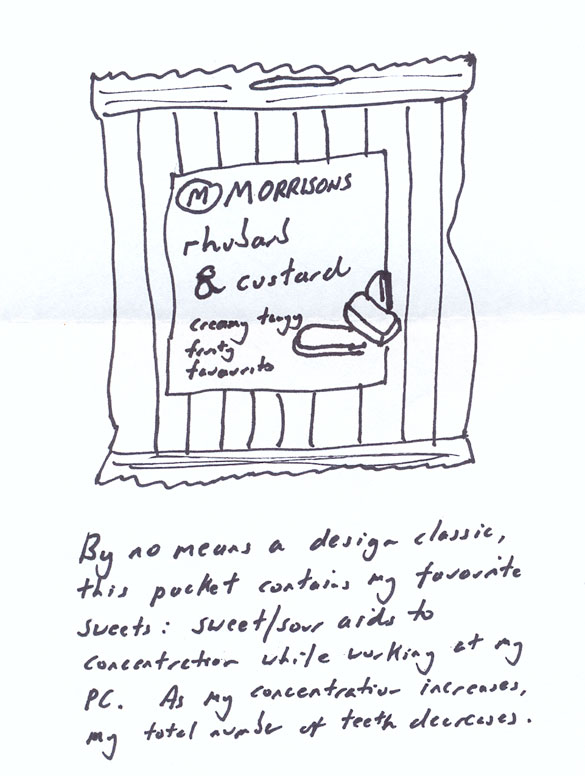 M MORRISONS
rhubarb
& custard
creamy tangy
fruity
favourite
By no means a design classic,
this packet contains my favourite
sweets: sweet/sour aids to
concentration while working at my
PC. As my concentration increases,
my total number of teeth decreases.